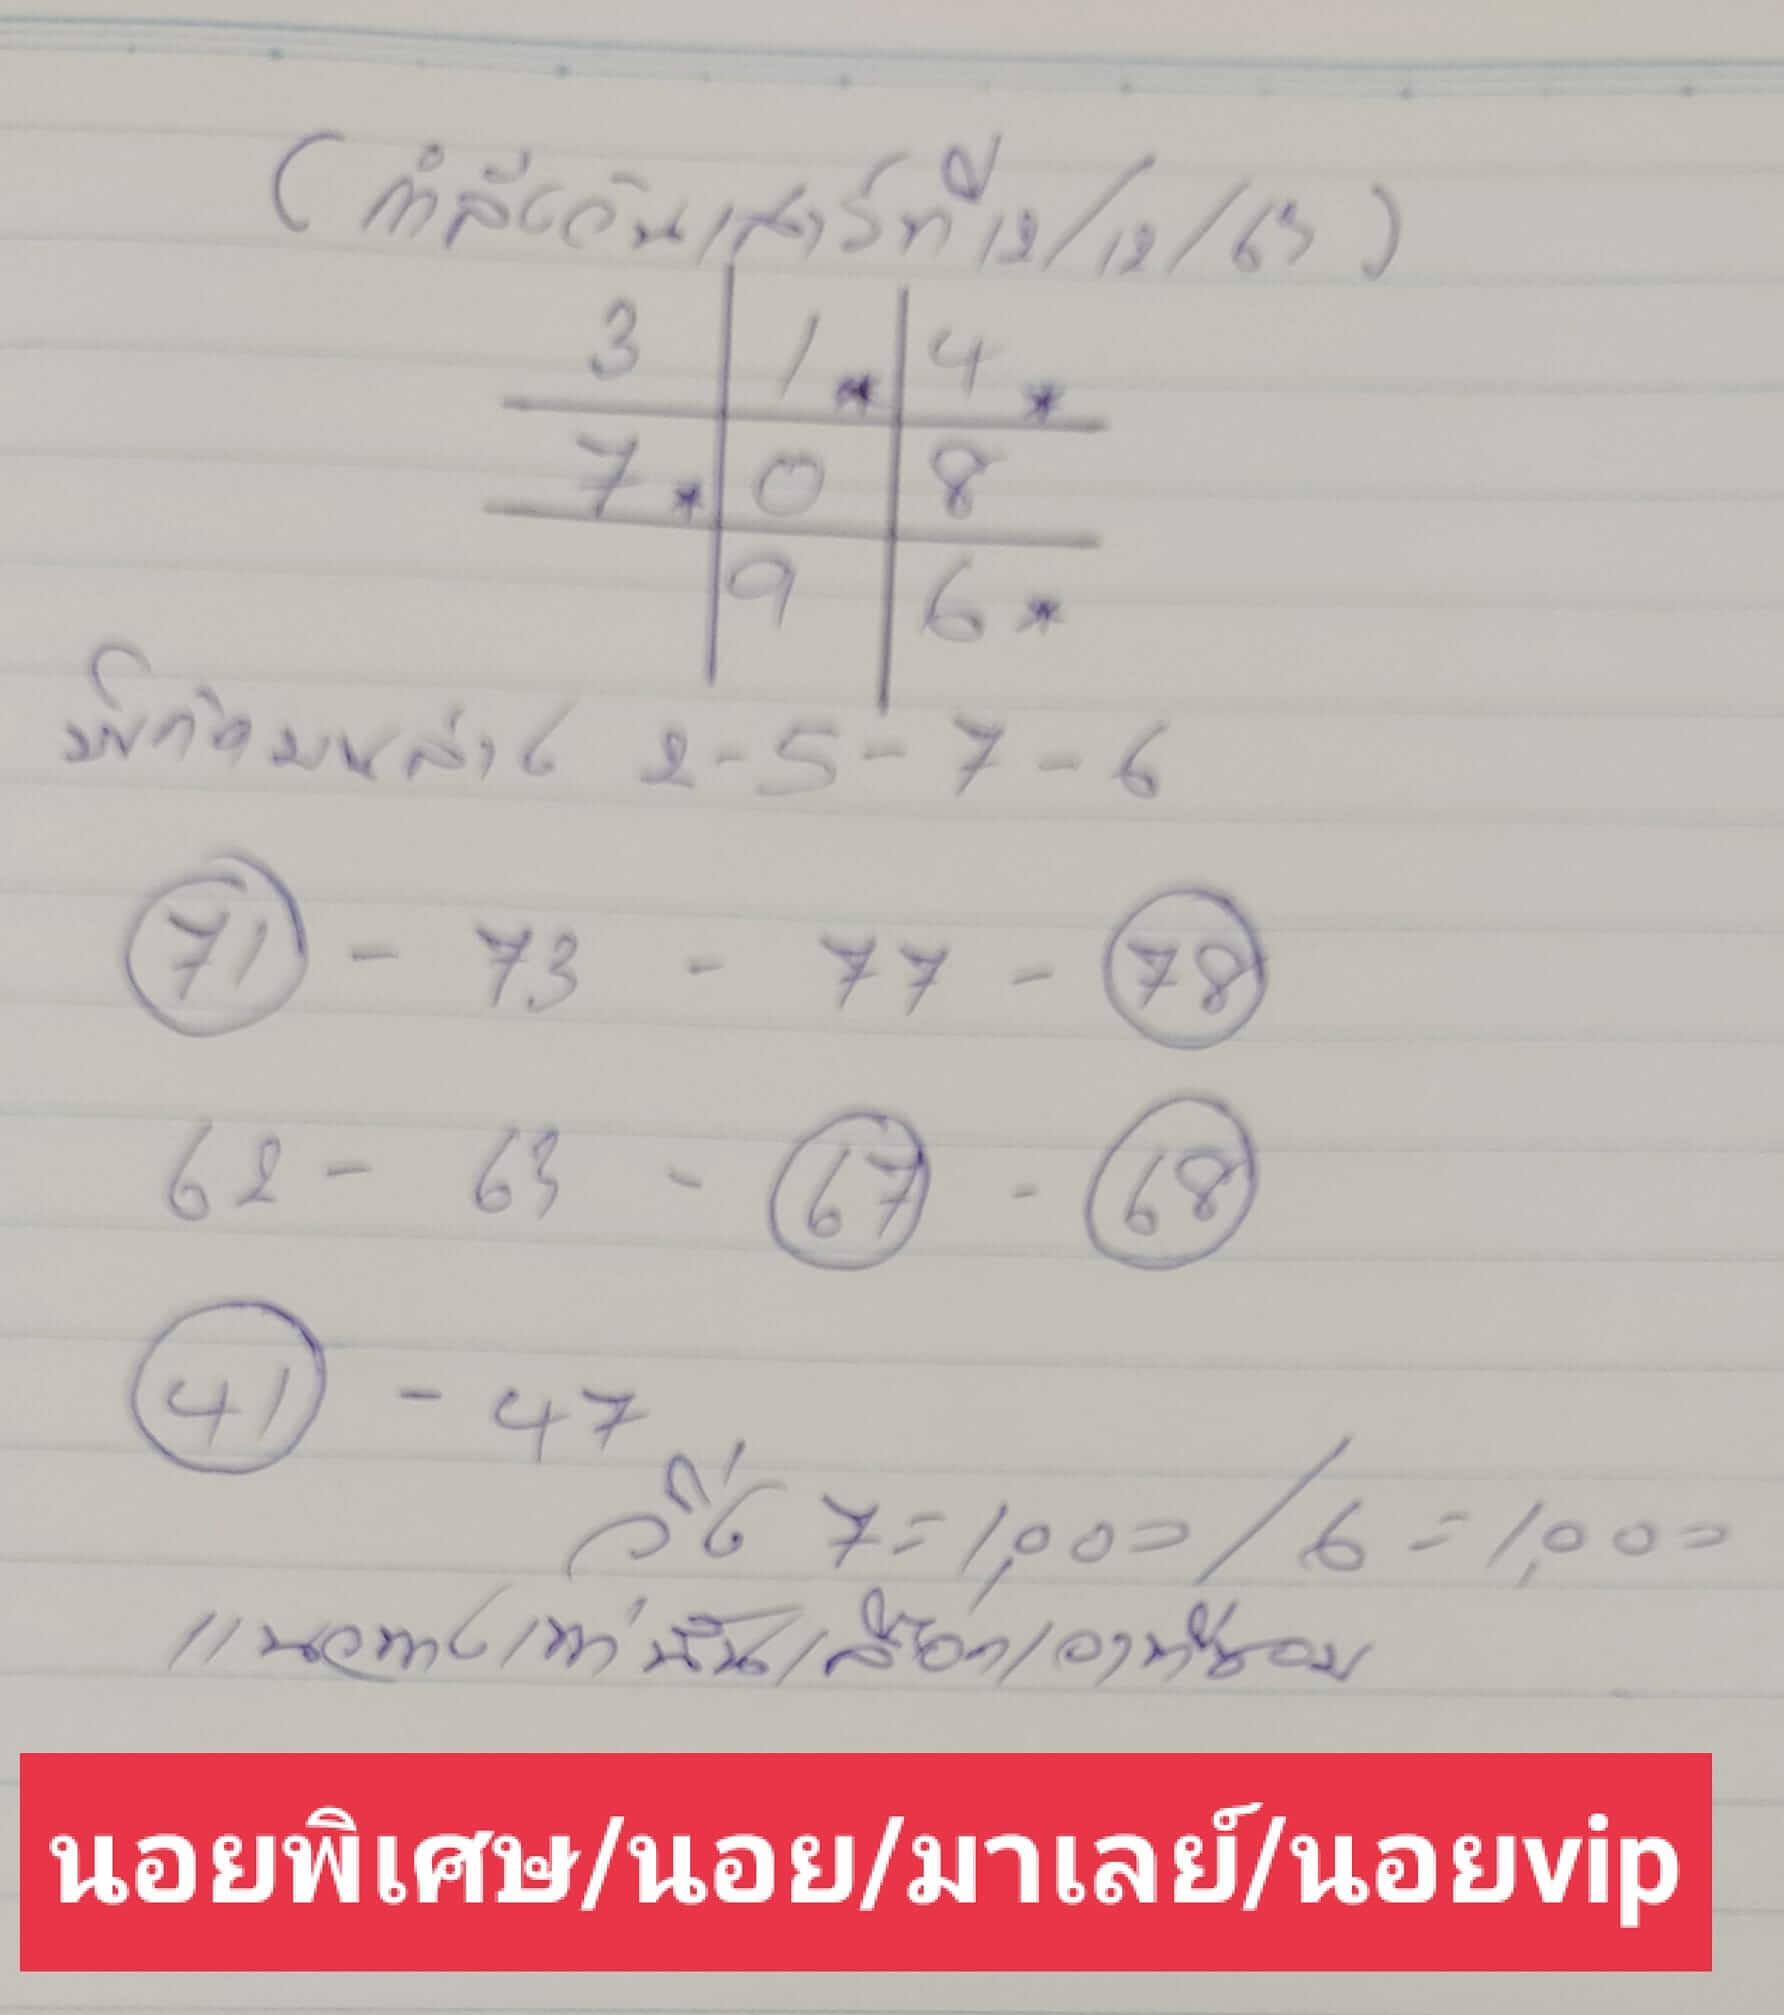 (กำลังวันเสาร์ที่ 12/12/63)
3 1* 4*
7* 0 8
9 6*
พิกัดบนล่าง 2-5-7-6
71 - 73 - 77 - 78
62 - 63 - 67 - 68
41 - 47
วิ่ง 7=1,000/6=1,000
แนวทางเท่านั้นเลือกเอาที่ชอบ
นอยพิเศษ/นอย/มาเลย์/นอยvip